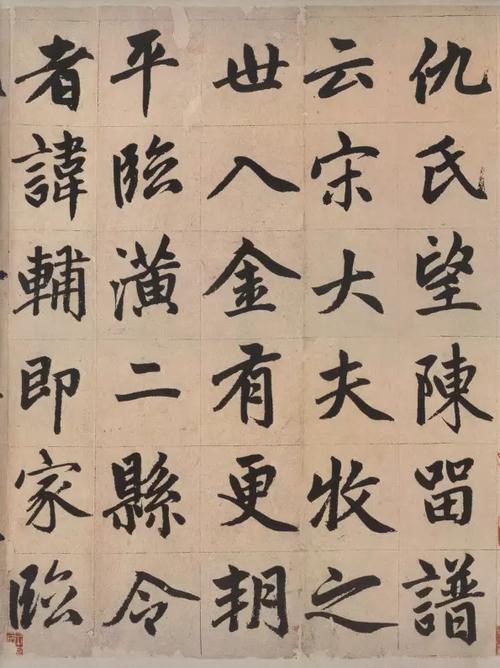 仇氏望陳留譜
云宋大夫牧之
世入金有更朔
平臨潢二縣令
者諱輔即家臨